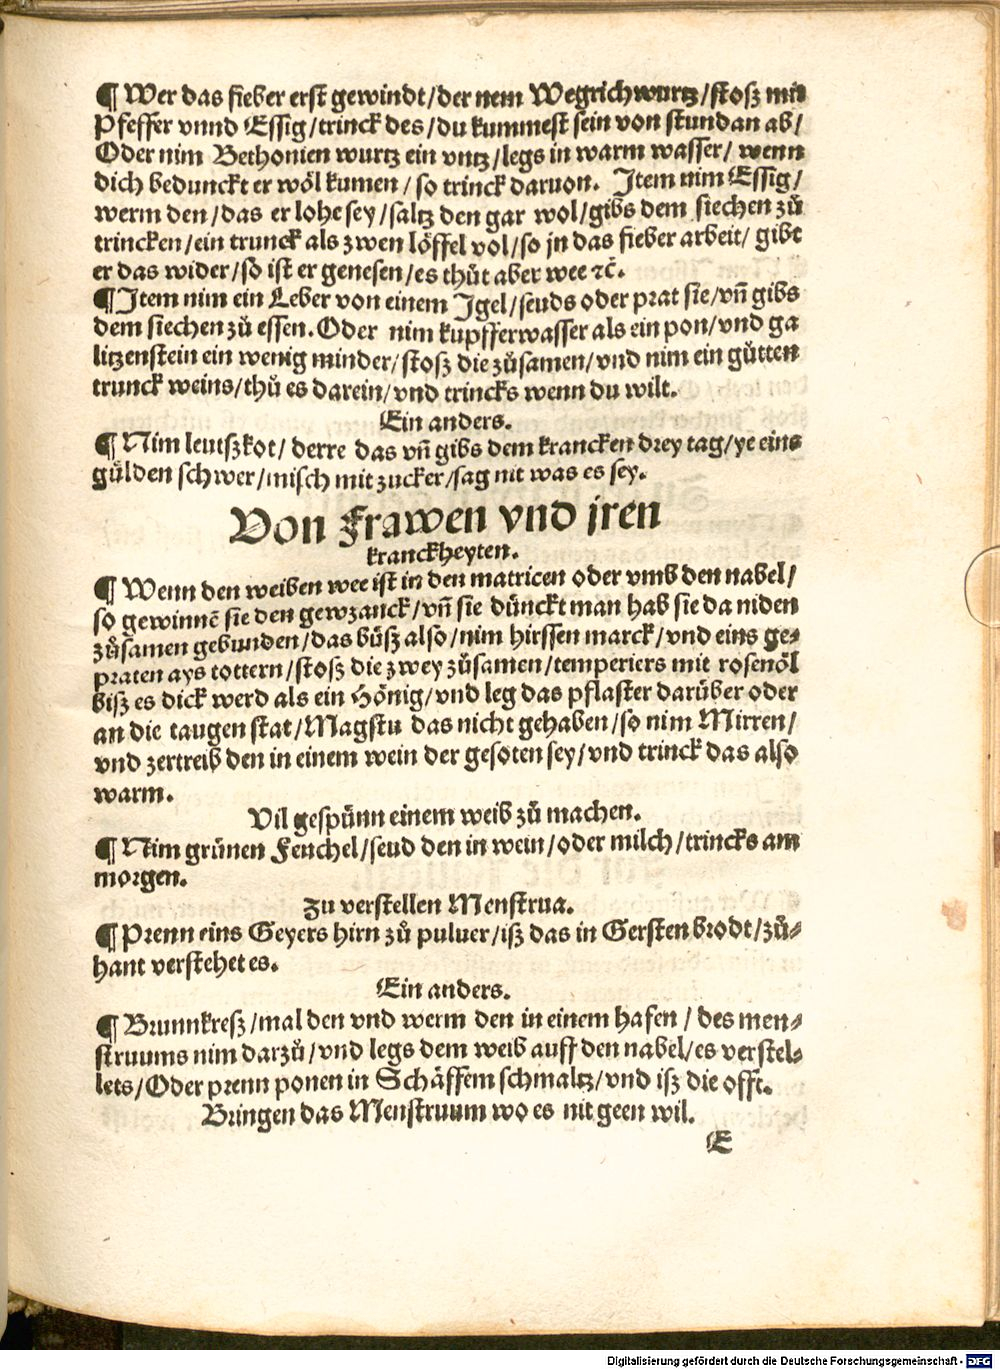 ¶ Wer das fieber erst gewindt/der nem Wegrichwurtz/stosz mit
Pfeffer vnnd Essig/trinck des/du kummest sein von stundan ab/
Oder nim Bethonien wurtz ein vntz/legs in warm wasser/ wenn
dich bedunckt er wöl kumen/so trinck daruon. Item nim Essig/
werm den/das er lohe sey/saltz den gar wol/gibs dem siechen zů
trincken/ein trunck als zwen löffel vol/so jn das fieber arbeit/ gibt
er das wider/so ist er genesen/es thůt aber wee ꝛc̄.
¶ Item nim ein Leber von einem Igel/seuds oder prat sie/vn̄ gibs
dem siechen zů essen. Oder nim kupfferwasser als ein pon/vnd ga
litzenstein ein wenig minder/stosz die zůsamen/vnd nim ein gůtten
trunck weins/thů es darein/vnd trincks wenn du wilt.
Ein anders.
¶ Nim leutszkot/ derre das vn̄ gibs dem krancken drey tag/ye eins
gülden schwer/misch mit zucker/sag nit was es sey.
Von Frawen vnd jren
kranckheyten.
¶ Wenn den weiben wee ist in den matricen oder vmb den nabel/
so gewinnē sie den gewzanck/vn̄ sie dünckt man hab sie da niden
zůsamen gebunden/das büsz also/nim hirssen marck/vnd eins ge⸗
praten ays tottern/stosz die zwey zůsamen/temperiers mit rosenöl
bisz es dick werd als ein Hönig/vnd leg das pflaster darüber oder
an die taugen stat/Magstu das nicht gehaben/so nim Mirren/
vnd zertreib den in einem wein der gesoten sey/vnd trinck das also
warm.
Vil gespünn einem weib zů machen.
¶ Nim grünen Fenchel/seud den in wein/oder milch/trincks am
morgen.
Zu verstellen Menstrua.
¶ Prenn eins Geyers hirn zů puluer/isz das in Gersten brodt/zů⸗
hant verstehet es.
Ein anders.
¶ Brunnkresz/mal den vnd werm den in einem hafen/ des men⸗
struums nim darzů/vnd legs dem weib auff den nabel/es verstel⸗
lets/Oder prenn ponen in Schäffem schmaltz/vnd isz die offt.
Bringen das Menstruum wo es nit geen wil.
E
Digitalisierung gefördert durch die Deutsche Forschungsgemeinschaft - DFG